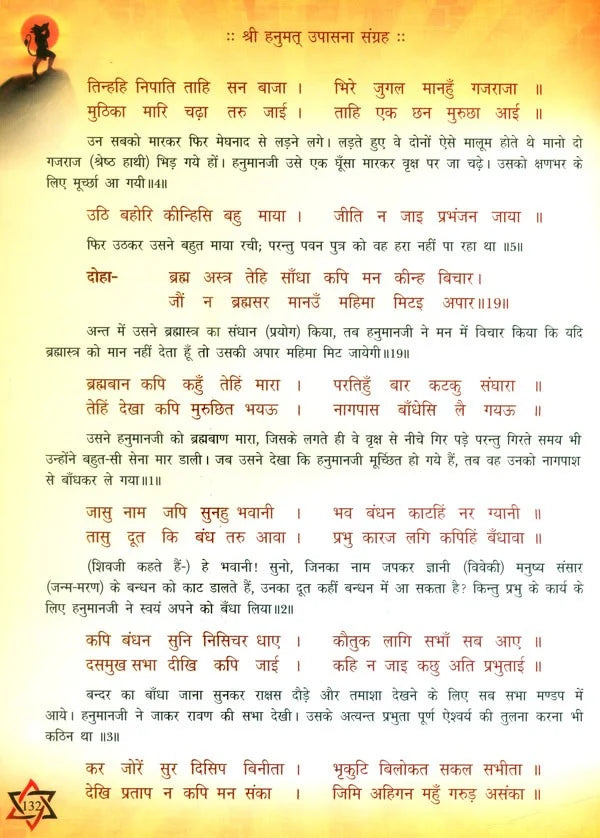 :: श्री हनुमत् उपासना संग्रह ::
तिन्हहि निपाति ताहि सन बाजा । भिरे जुगल मानहुँ गजराजा ॥
मुठिका मारि चढ़ा तरु जाई । ताहि एक छन मुरुछा आई ॥
उन सबको मारकर फिर मेघनाद से लड़ने लगे। लड़ते हुए वे दोनों ऐसे मालूम होते थे मानो दो
गजराज (श्रेष्ठ हाथी) भिड़ गये हों। हनुमानजी उसे एक घूँसा मारकर वृक्ष पर जा चढ़े। उसको क्षणभर के
लिए मूर्च्छा आ गयी॥4॥
उठि बहोरि कीन्हिसि बहु माया । जीति न जाइ प्रभंजन जाया ॥
फिर उठकर उसने बहुत माया रची; परन्तु पवन पुत्र को वह हरा नहीं पा रहा था॥5॥
दोहा- ब्रह्म अस्त्र तेहि साँधा कपि मन कीन्ह बिचार।
जौं न ब्रह्मसर मानउँ महिमा मिटइ अपार॥19॥
अन्त में उसने ब्रह्मास्त्र का संधान (प्रयोग) किया, तब हनुमानजी ने मन में विचार किया कि यदि
ब्रह्मास्त्र को मान नहीं देता हूँ तो उसकी अपार महिमा मिट जायेगी॥19॥
ब्रह्मबान कपि कहुँ तेहिं मारा । परतिहुँ बार कटकु संघारा ॥
तेहिं देखा कपि मुरुछित भयऊ । नागपास बाँधेसि लै गयऊ ॥
उसने हनुमानजी को ब्रह्मबाण मारा, जिसके लगते ही वे वृक्ष से नीचे गिर पड़े परन्तु गिरते समय भी
उन्होंने बहुत-सी सेना मार डाली। जब उसने देखा कि हनुमानजी मूर्च्छित हो गये हैं, तब वह उनको नागपाश
से बाँधकर ले गया॥1॥
जासु नाम जपि सुनहु भवानी । भव बंधन काटहिं नर ग्यानी ॥
तासु दूत कि बंध तरु आवा । प्रभु कारज लगि कपिहिं बँधावा ॥
(शिवजी कहते हैं-) हे भवानी! सुनो, जिनका नाम जपकर ज्ञानी (विवेकी) मनुष्य संसार
(जन्म-मरण) के बन्धन को काट डालते हैं, उनका दूत कहीं बन्धन में आ सकता है? किन्तु प्रभु के कार्य के
लिए हनुमानजी ने स्वयं अपने को बँधा लिया॥2॥
कपि बंधन सुनि निसिचर धाए । कौतुक लागि सभाँ सब आए ॥
दसमुख सभा दीखि कपि जाई । कहि न जाइ कछु अति प्रभुताई ॥
बन्दर का बाँधा जाना सुनकर राक्षस दौड़े और तमाशा देखने के लिए सब सभा मण्डप में
आये। हनुमानजी ने जाकर रावण की सभा देखी। उसके अत्यन्त प्रभुता पूर्ण ऐश्वर्य की तुलना करना भी
कठिन था॥3॥
कर जोरें सुर दिसिप बिनीता । भृकुटि बिलोकत सकल सभीता ॥
देखि प्रताप न कपि मन संका । जिमि अहिगन महुँ गरुड़ असंका ॥
132